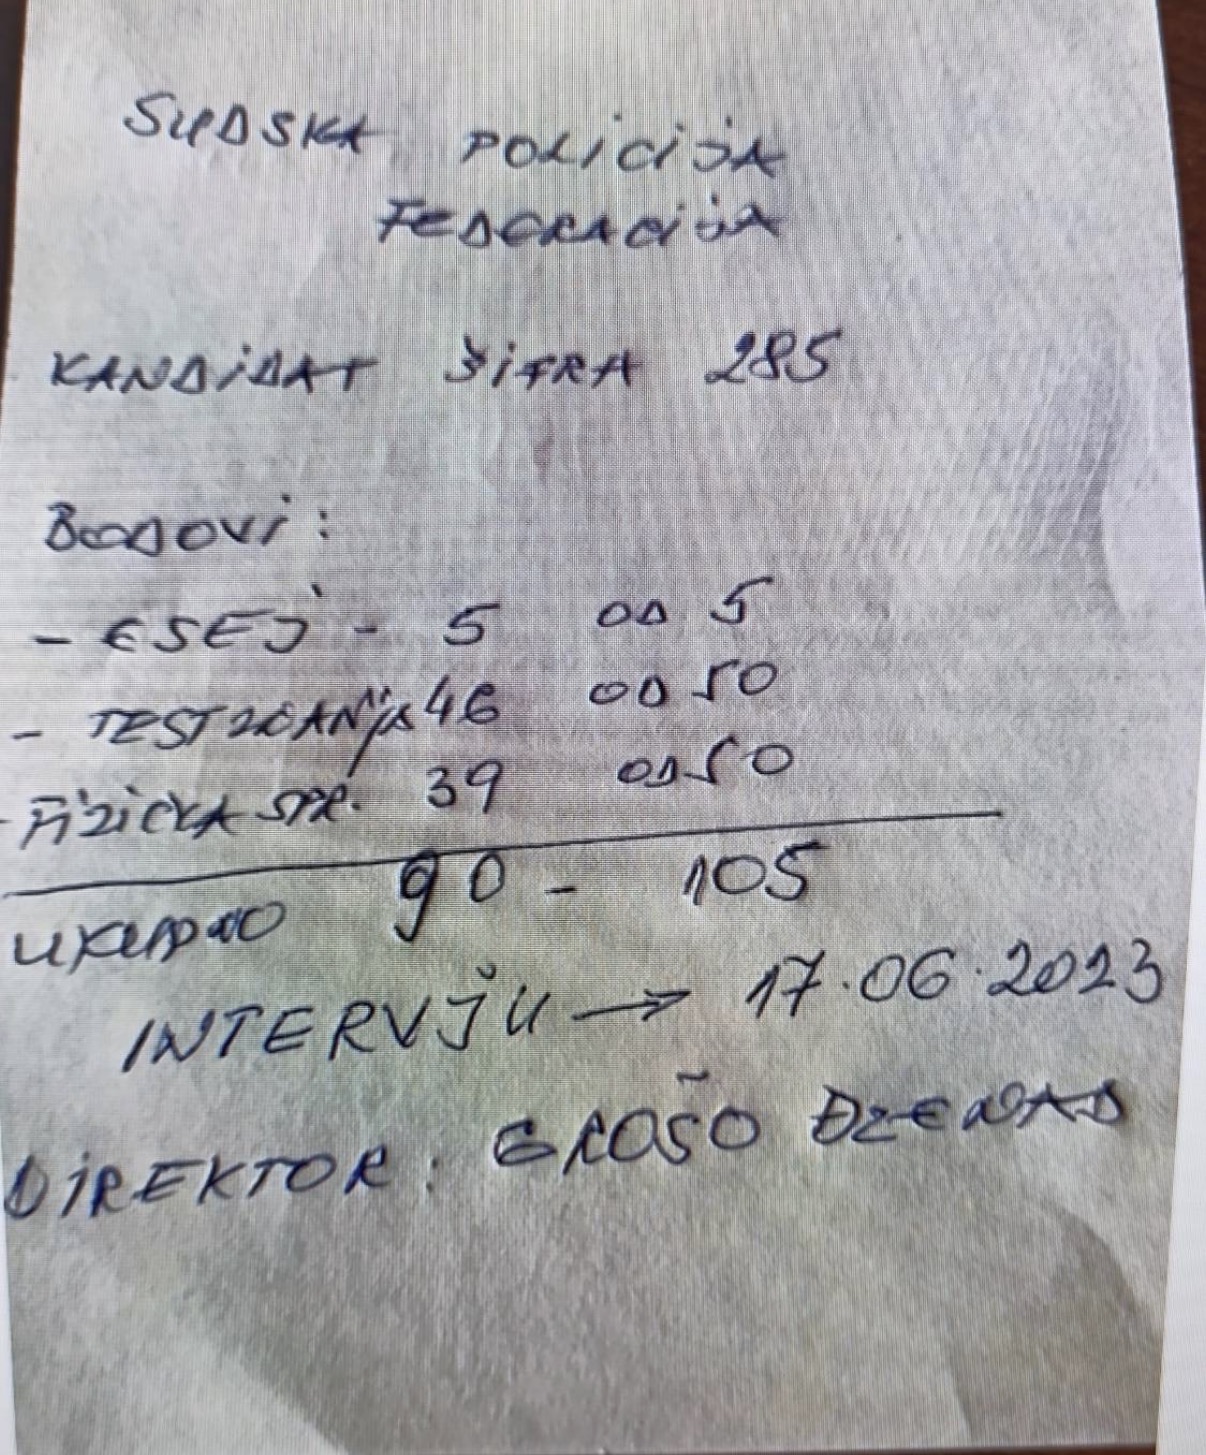 SUDSKA POLICIJA
FEDERACIJA
KANDIDAT ŠIFRA 285
BODOVI:
- ESEJ - 5 OD 5
- TEST ZNANJA 46 OD 50
- FIZIČKA SPR. 39 OD 50
UKUPNO 90 - 105
INTERVJU → 17.06.2023
DIREKTOR: GROŠO DŽENAD